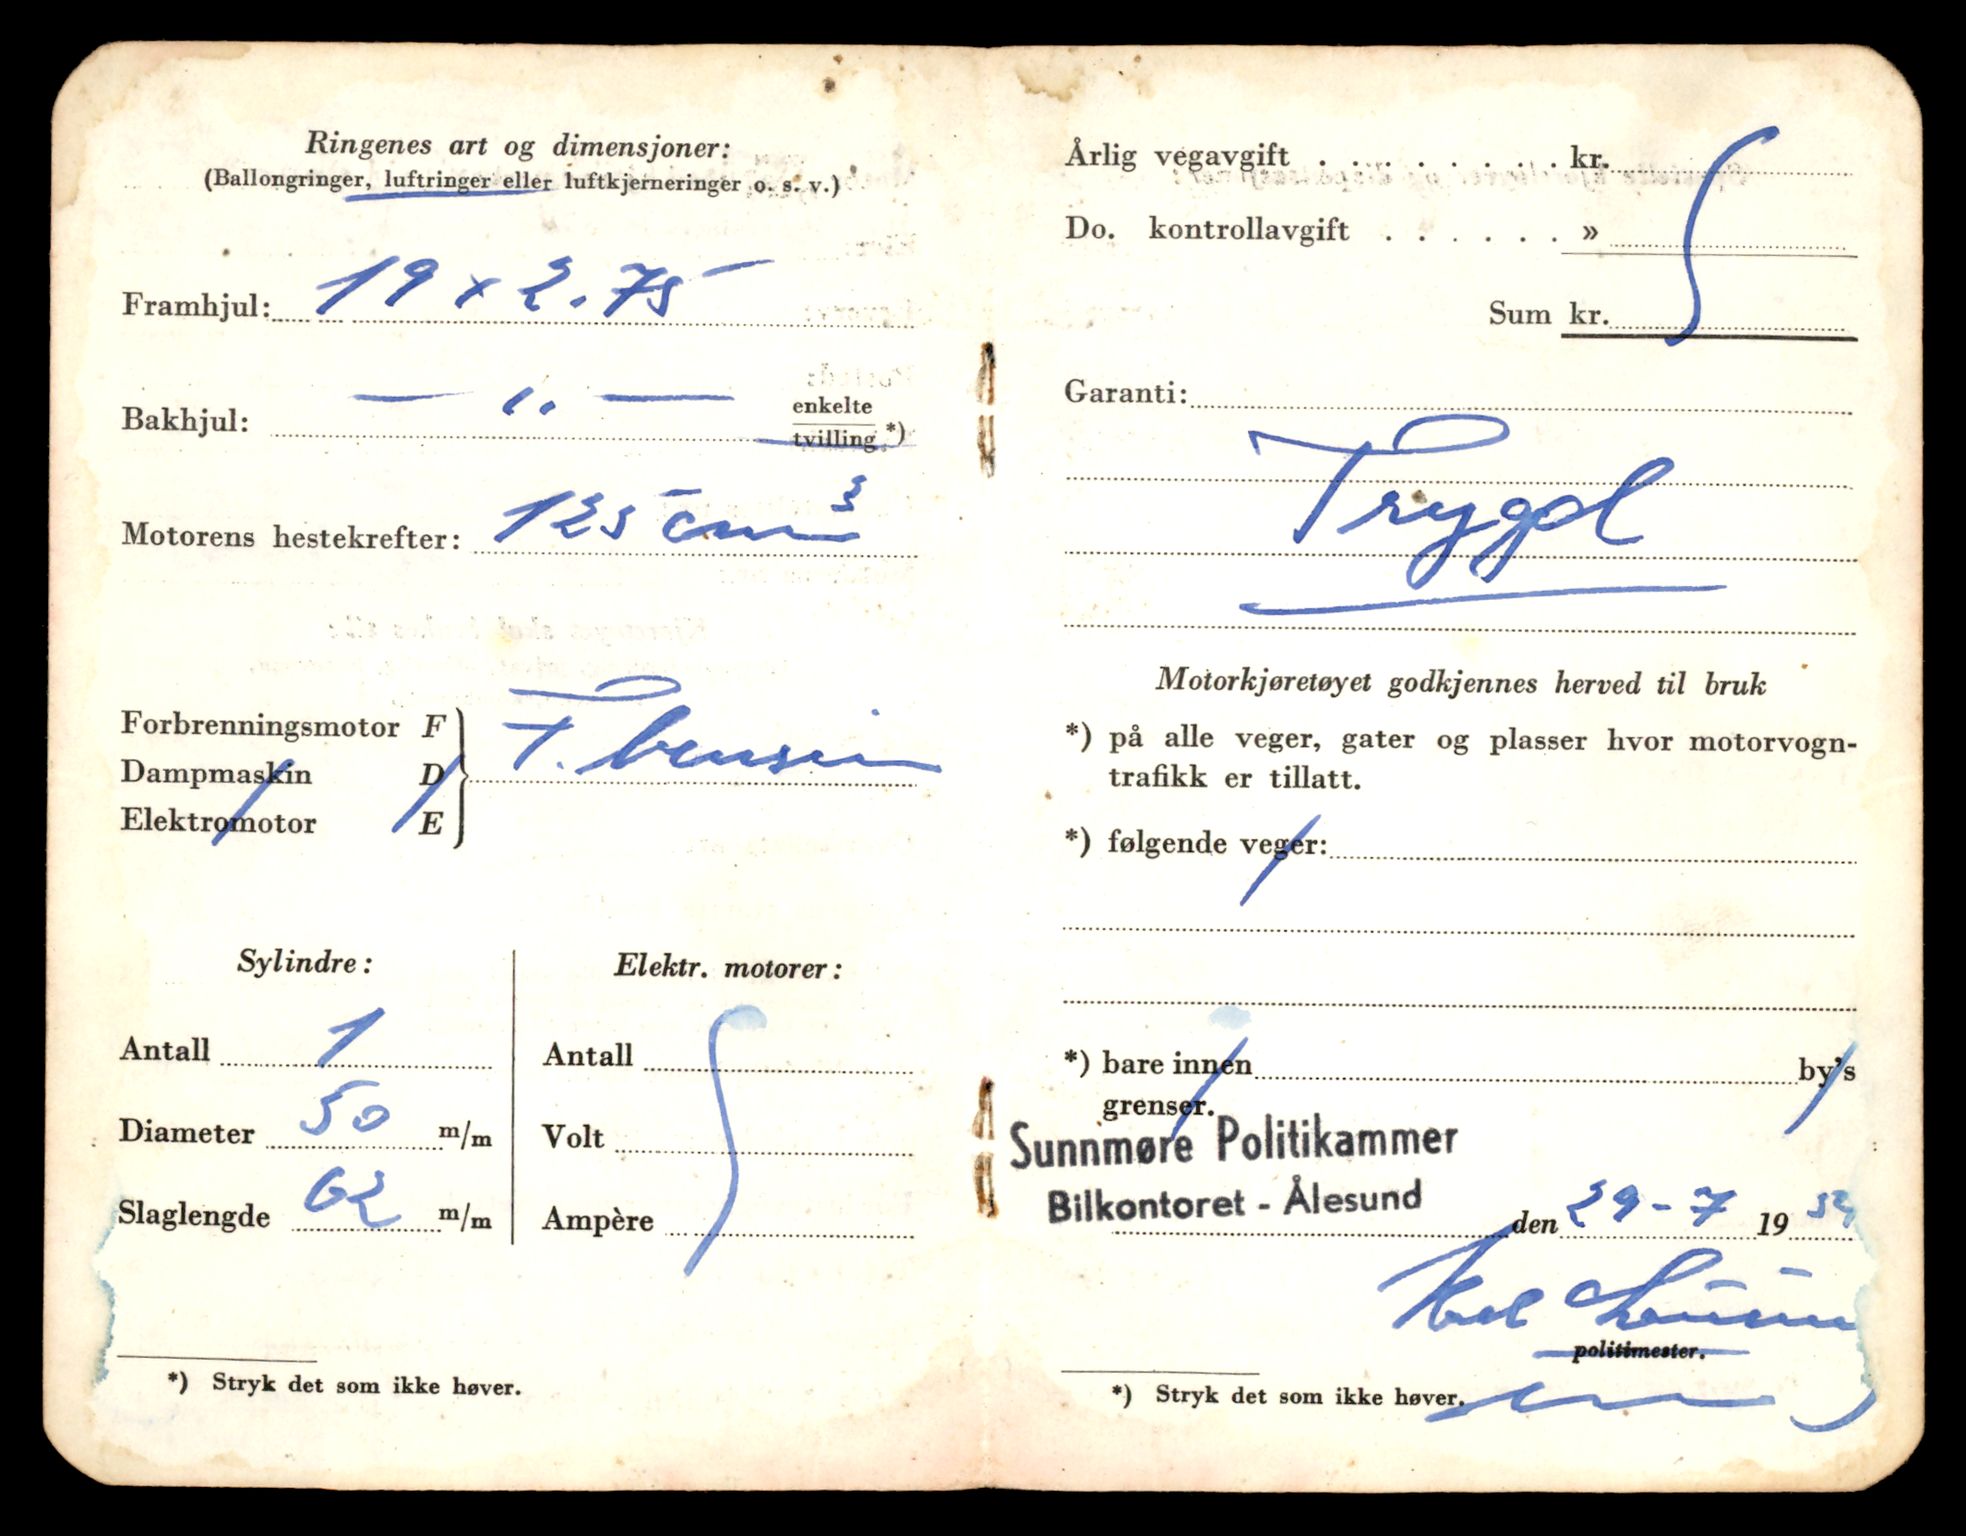 Ringenes art og dimensjoner:
(Ballongringer, luftringer eller luftkjerneringer o. s. v.)
Framhjul: 19 x 2.75
Bakhjul: — „ — enkelte
tvilling *)
Motorens hestekrefter: 125 cm³
Forbrenningsmotor F
Dampmaskin D
Elektromotor E
F. bensin
Sylindre:
Antall 1
Diameter 50 m/m
Slaglengde 62 m/m
Elektr. motorer:
Antall
Volt
Ampère
*) Stryk det som ikke høver.
Årlig vegavgift . . . . . . . . . kr.
Do. kontrollavgift . . . . . . »
Sum kr.
Garanti:
Trygd
Motorkjøretøyet godkjennes herved til bruk
*) på alle veger, gater og plasser hvor motorvogn-
trafikk er tillatt.
*) følgende veger:
*) bare innen by's
grenser.
Sunnmøre Politikammer
Bilkontoret - Ålesund
den 29-7 19
politimester.
*) Stryk det som ikke høver.